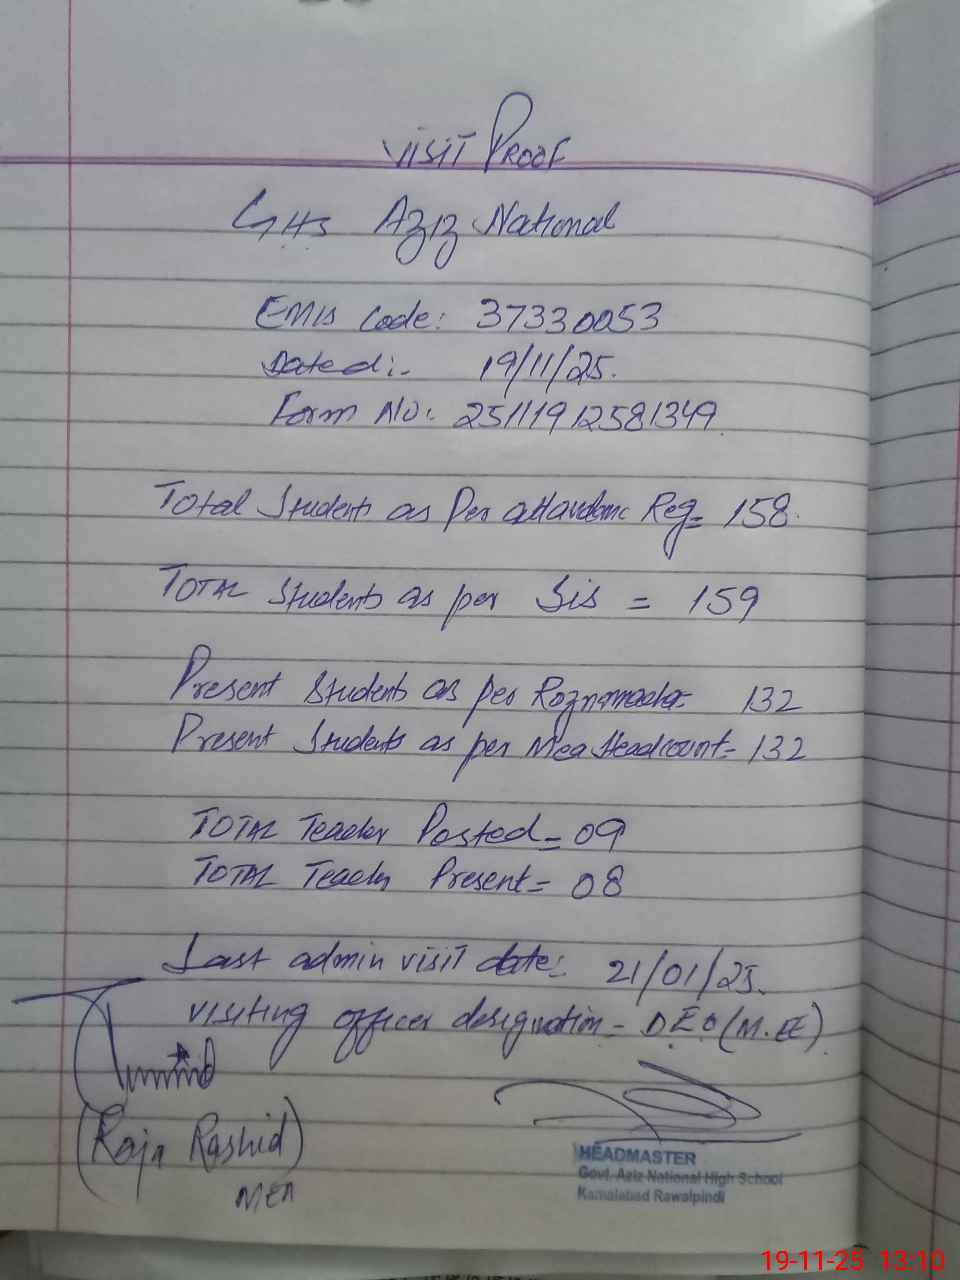 VISIT PROOF
GHS Aziz National
EMIS Code: 37330053
Dated:- 19/11/25.
Form No: 25111912581349
Total Students as Per attandanc Reg= 158.
TOTAL Students as per Sis = 159
Present Students as per Roznamcha- 132
Present Students as per Mea Headcount= 132
TOTAL Teacher Posted= 09
TOTAL Teacher Present= 08
Last admin visit date: 21/01/25.
visiting officer designation - DEO (M.EE)
(Raja Rashid)
MEA
HEADMASTER
Govt. Aziz National High School
Kamalabad Rawalpindi
19-11-25 13:10